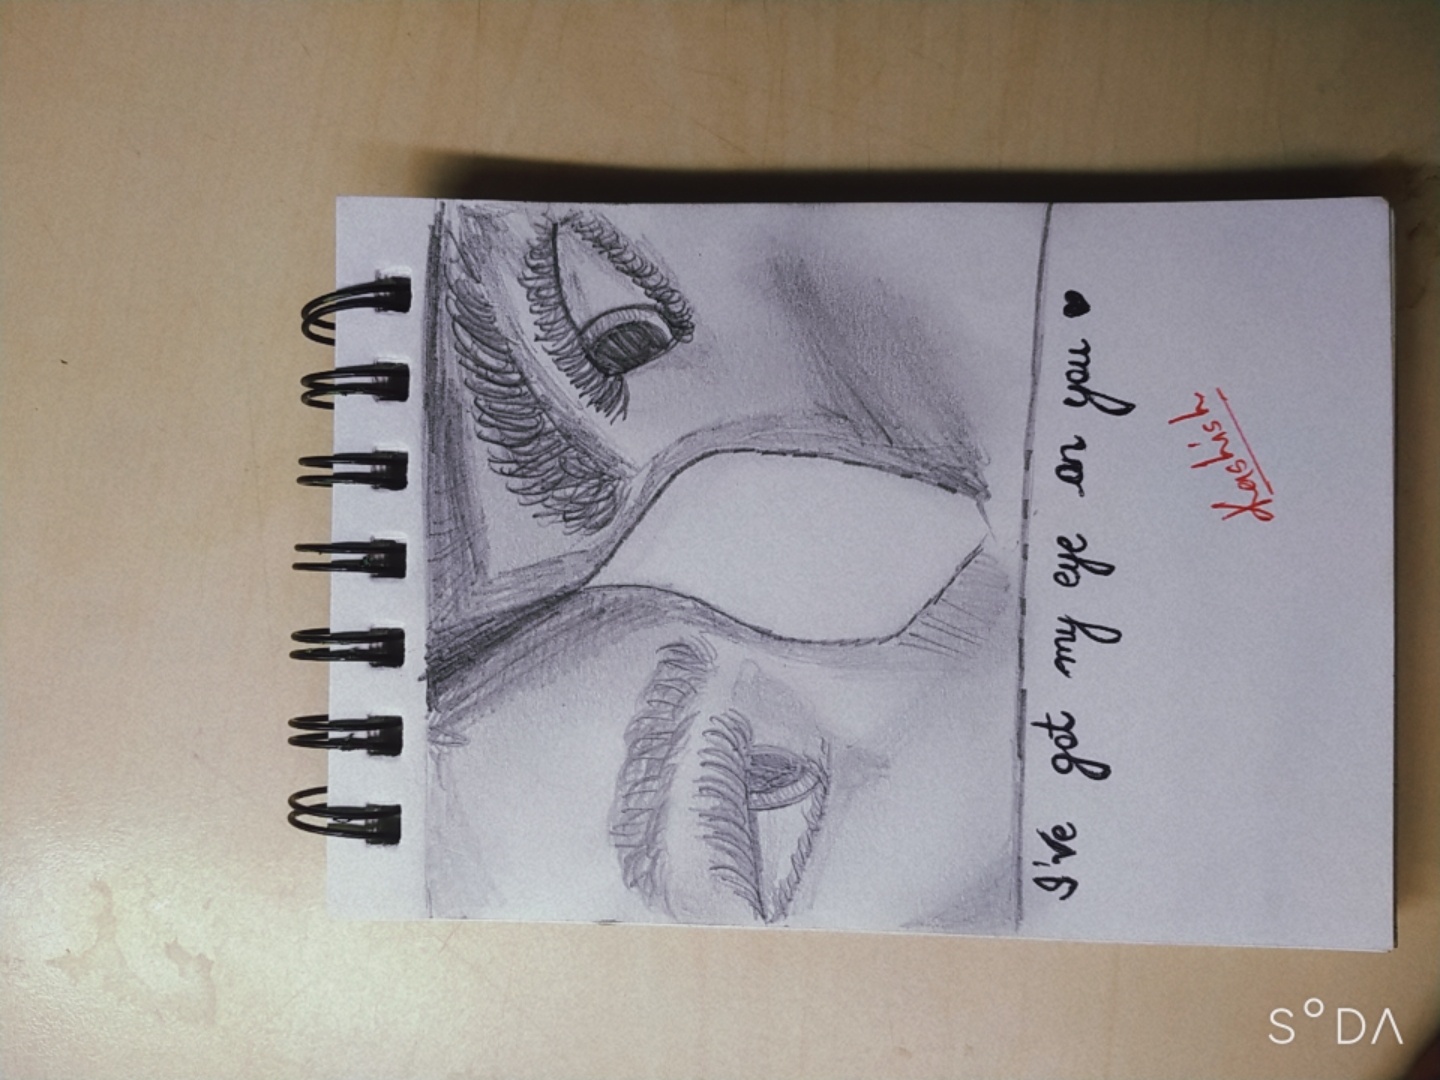 I've got my eye on you ♥
Kashish
SODA